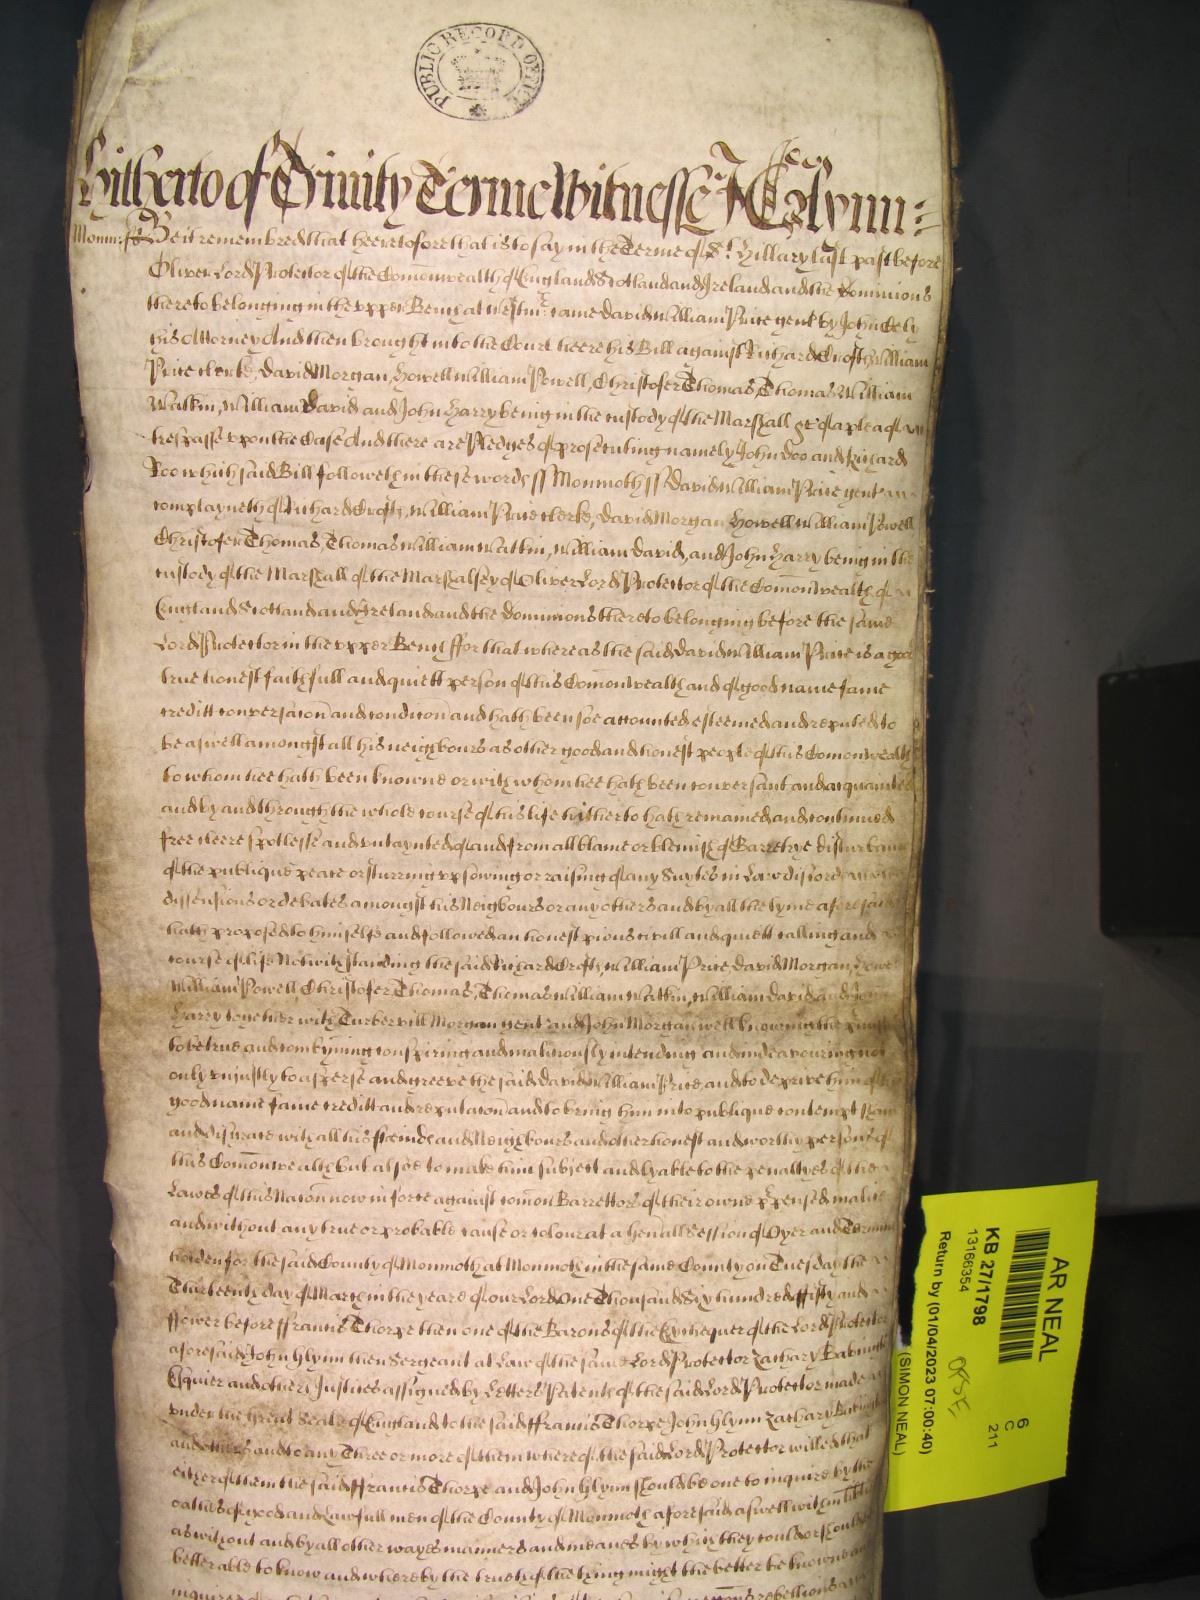 PUBLIC RECORD OFFICE
Hitherto of Trinity Terme Witnesse J Glynn
Monm: ss Be it remembred that heeretofore that is to say in the Terme of St. Hillary last past before
Oliver Lord Protector of the Com̃onwealth of England Scotland and Ireland and the Dominions
thereto belonging in the vpper Bench at Westmr came David William Price gent by John Cely
his Attorney And then brought into the Court heere his Bill against Richard Croft, William
Price clerke, David Morgan, Howell William Powell, Christofer Thomas, Thomas William
Watkin, William David and John Harry being in the custody of the Marshall &c of a plea of
trespasse vpon the Case And there are Pledges of prosecuting namely John Doo and Richard
Roo which said Bill followeth in these words ss Monmoth ss David William Price gent
complayneth of Richard Croft, William Price clerke, David Morgan Howell William Powell
Christofer Thomas, Thomas William Watkin, William David, and John Harry being in the
custody of the Marshall of the Marshalsey of Oliver Lord Protector of the Com̃onwealth of
England Scotland and Ireland and the Dominions thereto belonging before the same
Lord Protector in the vpper Bench ffor that whereas the said David William Price is a good
true honest faithfull and quiett person of this Com̃onwealth and of good name fame
creditt conversac̃on and condic̃on and hath been soe accounted esteemed and reputed to
be aswell amongst all his neighbours as other good and honest people of this Com̃onwealth
to whom hee hath been knowne or with whom hee hath been conversant and acquainted
and by and through the whole course of his life hitherto hath remained and continued
free cleere spotlesse and vntaynted of and from all blame or blemish of Barretrye disturbance
of the publique peace or sturring vp sowing or raising of any Suytes in Law discord
dissensions or debates amongst his Neigbours or any others and by all the tyme aforesaid
hath proposed to himselfe and followed an honest pious civill and quiett calling and
course of life Notwithstanding the said Richard Croft, William Price, David Morgan, Howell
William Powell Christofer Thomas, Thomas William Watkin, William David and John
Harry together with Turbervill Morgan gent and John Morgan well knowing the
to be true and combyning conspiring and malitiously intending and indeavouring not
only vniustly to asperse and greeve the said David William Price, and to deprive him of
good name fame creditt and reputac̃on and to bring him into publique contempt
and disgrace with all his freinds and Neighbours and other honest and worthy persons of
this Com̃onwealth but alsoe to make him subject and lyable to the penaltyes of the
Lawes of this Nac̃on now in force against com̃on Barrettors of their owne malice
and without any true or probable cause or colour at a Session of Oyer and Termin
holden for the said County of Monmoth at Monmoth in the same County on Tuesday the
Thirteenth day of March in the yeare of our Lord One Thousand Six hundred ffifty and
ffower before ffrancis Thorpe then one of the Barons of the Exchequer of the Lord Protector
aforesaid John Glynn then Sergeant at Law of the same Lord Protector Zachary Babington
Esquier and others Justices assigned by Letters Patent of the said Lord Protector made
vnder the great Seale of England to the said ffrancis Thorpe John Glynn Zachary Babington
and others and to any Three or more of them whereof the said Lord Protector willed that
either of them the said ffrancis Thorpe and John Glynn should be one to inquire by the
oathes of good and lawfull men of the County of Monmoth aforesaid aswell within
as without and by all other wayes manners and meanes by which they could or should
better able to know and whereby the truth of the thing might the better be knowne and
inquired rebellions
AR NEAL
KB 27/1798
13166354
Return by (01/04/2023 07:00:40)
(SIMON NEAL)
6
C
211